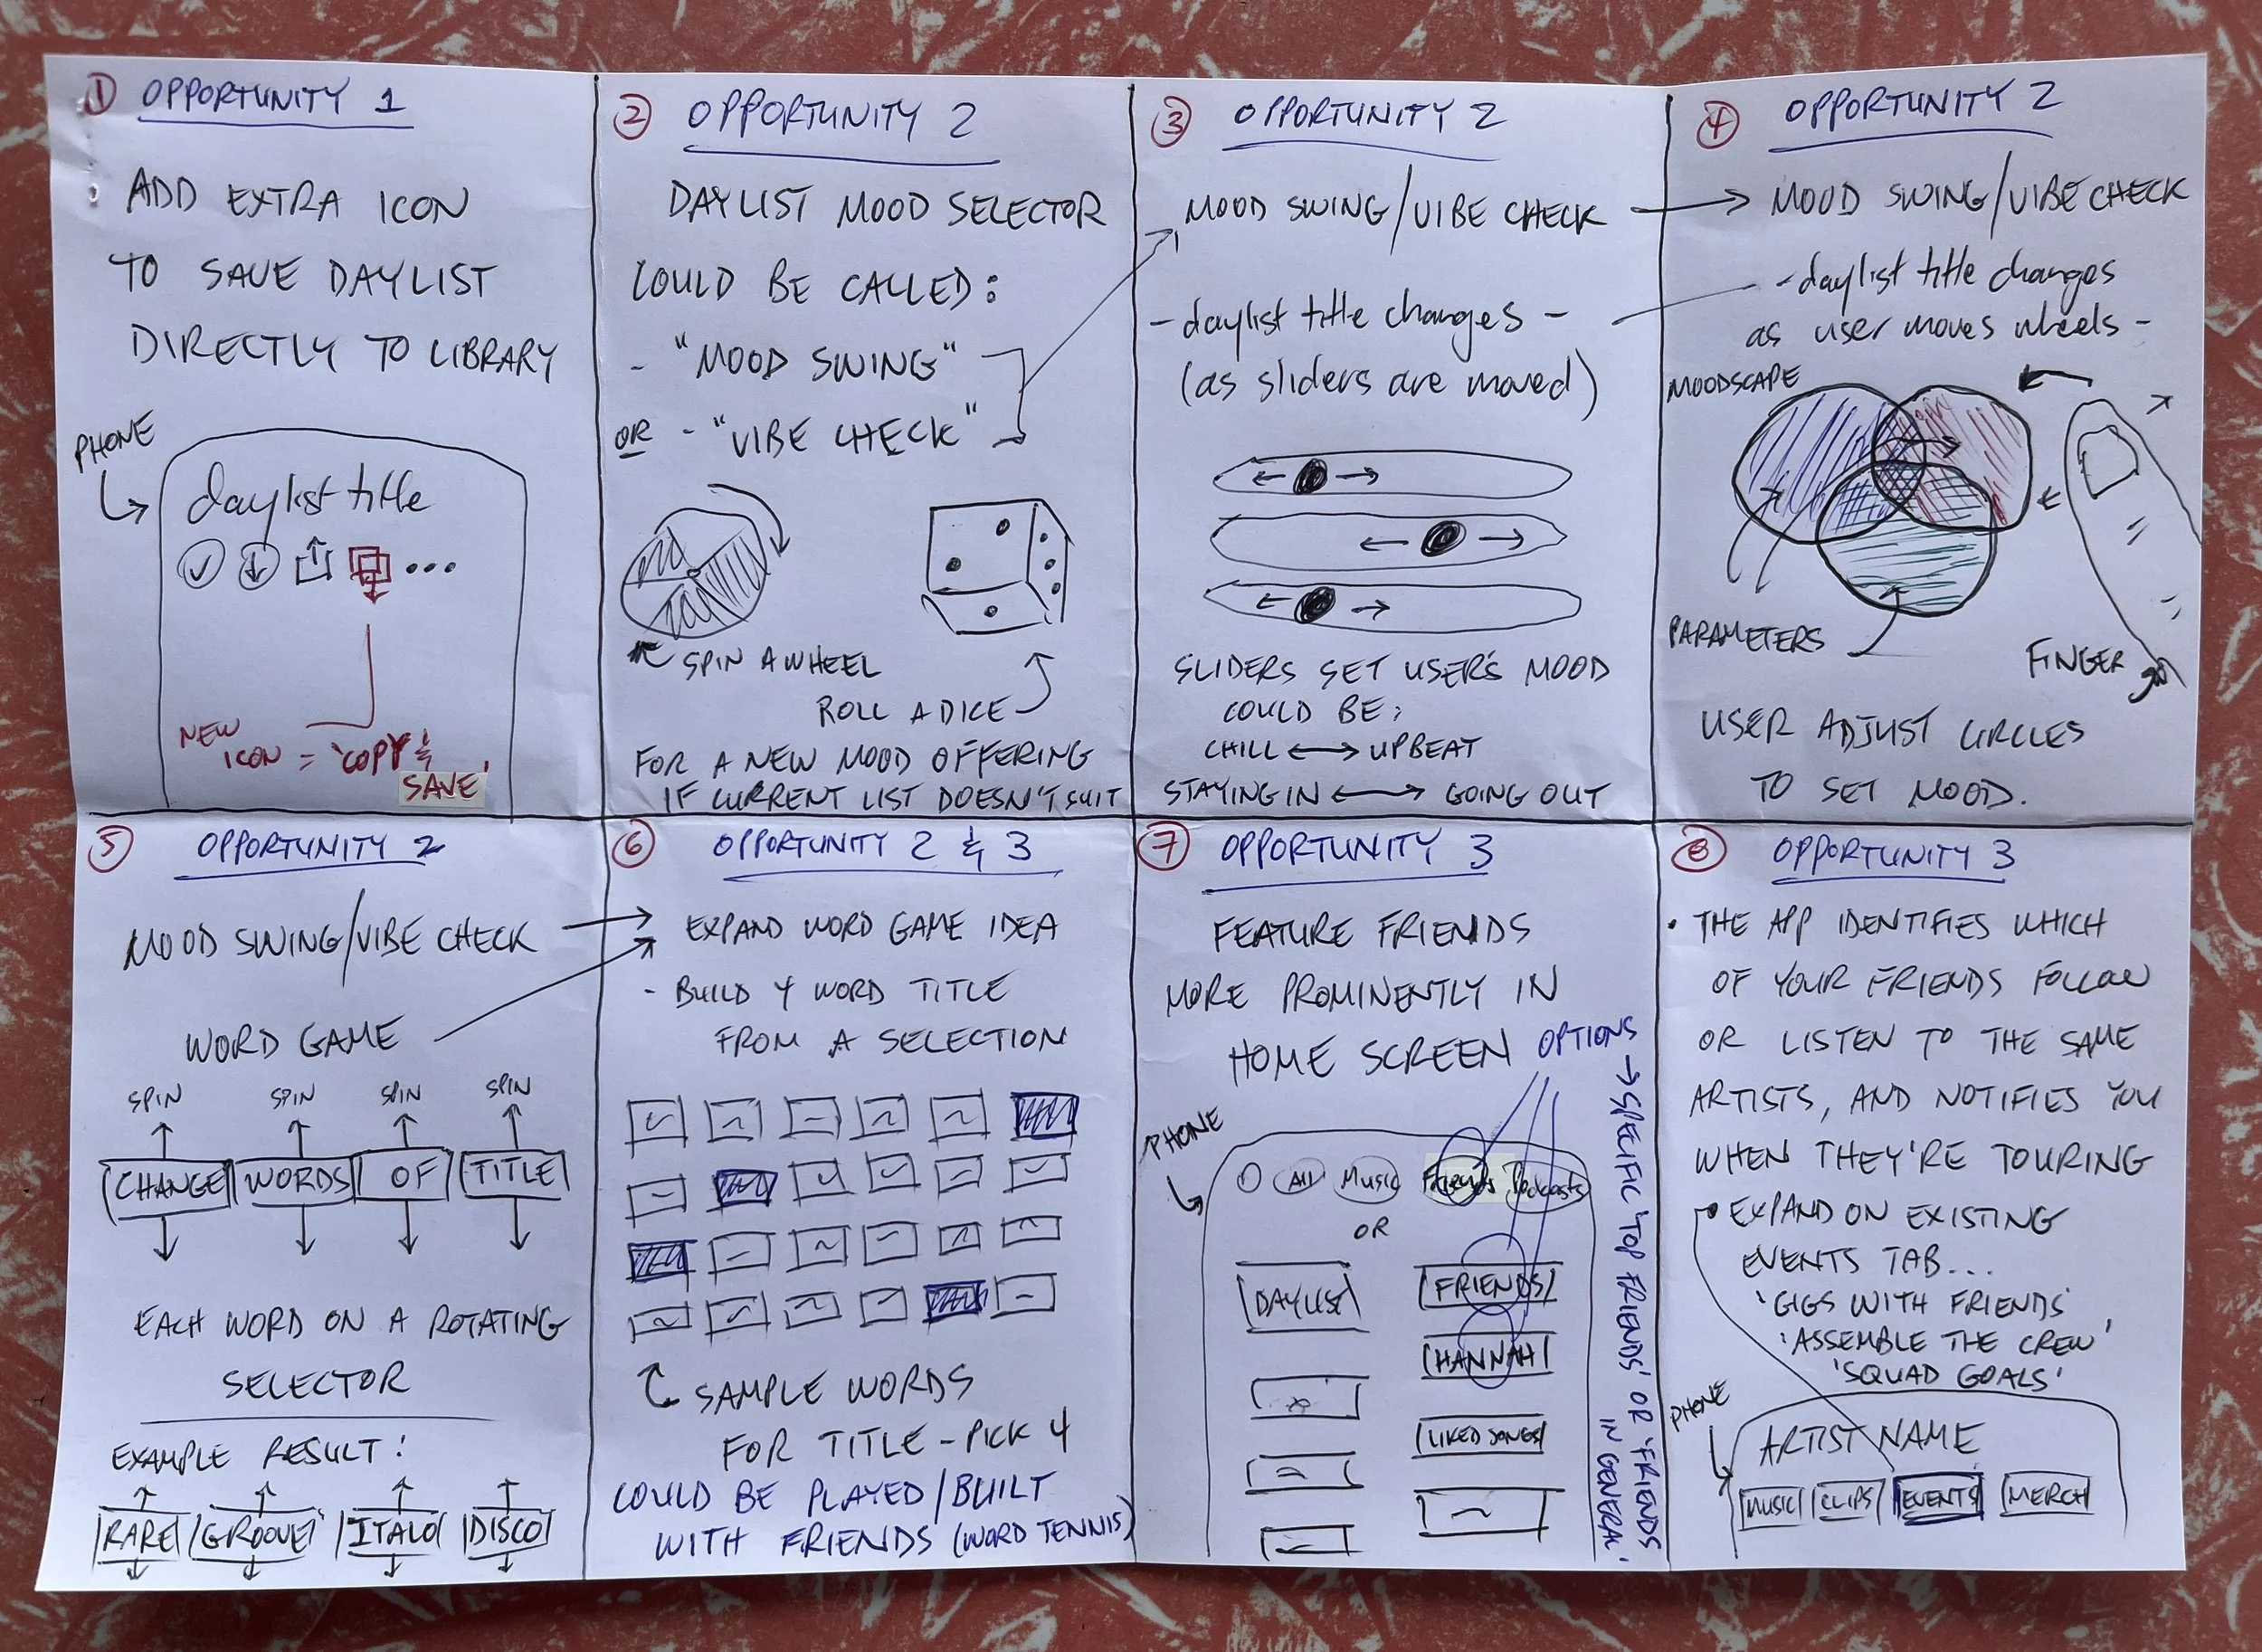 ① OPPORTUNITY 1
ADD EXTRA ICON
TO SAVE DAYLIST
DIRECTLY TO LIBRARY
PHONE
daylist title
NEW
ICON = 'COPY &
SAVE'
② OPPORTUNITY 2
DAYLIST MOOD SELECTOR
COULD BE CALLED:
- "MOOD SWING"
OR - "VIBE CHECK"
SPIN A WHEEL
ROLL A DICE
FOR A NEW MOOD OFFERING
IF CURRENT LIST DOESN'T SUIT
③ OPPORTUNITY 2
MOOD SWING/VIBE CHECK
- daylist title changes -
(as sliders are moved)
SLIDERS SET USER'S MOOD
COULD BE:
CHILL ↔ UPBEAT
STAYING IN ↔ GOING OUT
④ OPPORTUNITY 2
MOOD SWING/VIBE CHECK
- daylist title changes
as user moves wheels -
MOODSCAPE
PARAMETERS
FINGER
USER ADJUST CIRCLES
TO SET MOOD.
⑤ OPPORTUNITY 2
MOOD SWING/VIBE CHECK
WORD GAME
SPIN SPIN SPIN SPIN
CHANGE WORDS OF TITLE
EACH WORD ON A ROTATING
SELECTOR
EXAMPLE RESULT:
RARE GROOVE ITALO DISCO
⑥ OPPORTUNITY 2 & 3
EXPAND WORD GAME IDEA
- BUILD 4 WORD TITLE
FROM A SELECTION
SAMPLE WORDS
FOR TITLE - PICK 4
COULD BE PLAYED/BUILT
WITH FRIENDS (WORD TENNIS)
⑦ OPPORTUNITY 3
FEATURE FRIENDS
MORE PROMINENTLY IN
HOME SCREEN
OPTIONS → SPECIFIC 'TOP FRIENDS' OR 'FRIENDS
IN GENERAL'
PHONE
All Music Friends Podcasts
OR
DAYLIST
FRIENDS
HANNAH
LIKED SONGS
⑧ OPPORTUNITY 3
• THE APP IDENTIFIES WHICH
OF YOUR FRIENDS FOLLOW
OR LISTEN TO THE SAME
ARTISTS, AND NOTIFIES YOU
WHEN THEY'RE TOURING
• EXPAND ON EXISTING
EVENTS TAB...
'GIGS WITH FRIENDS'
'ASSEMBLE THE CREW'
'SQUAD GOALS'
PHONE
ARTIST NAME
MUSIC CLIPS EVENTS MERCH